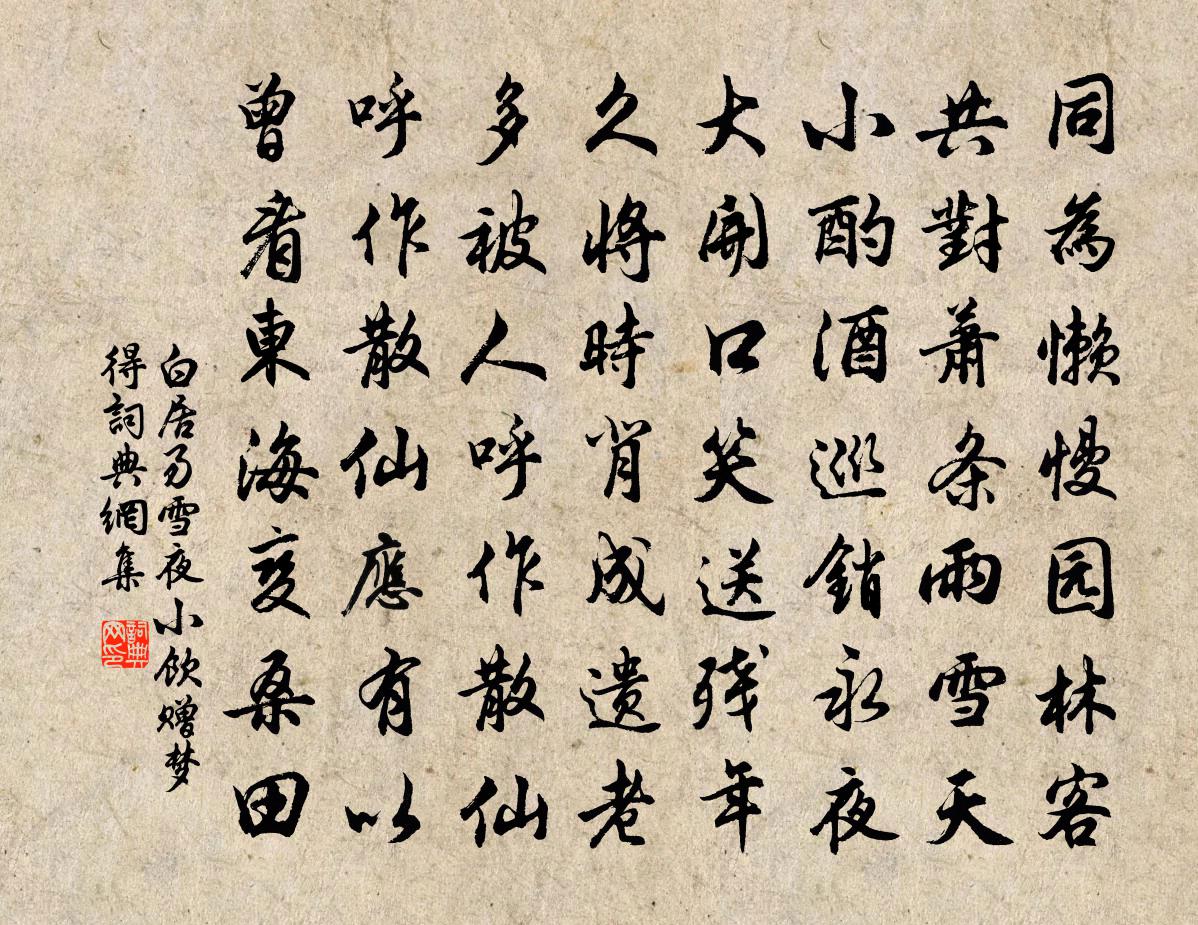 同為懒慢园林客
共對蕭条雨雪天
小酌酒巡銷永夜
大開口笑送残年
久將時背成遗老
多被人呼作散仙
呼作散仙應有以
曾看東海变桑田
白居易雪夜小飲赠梦
得詞典網集
詞典
网印